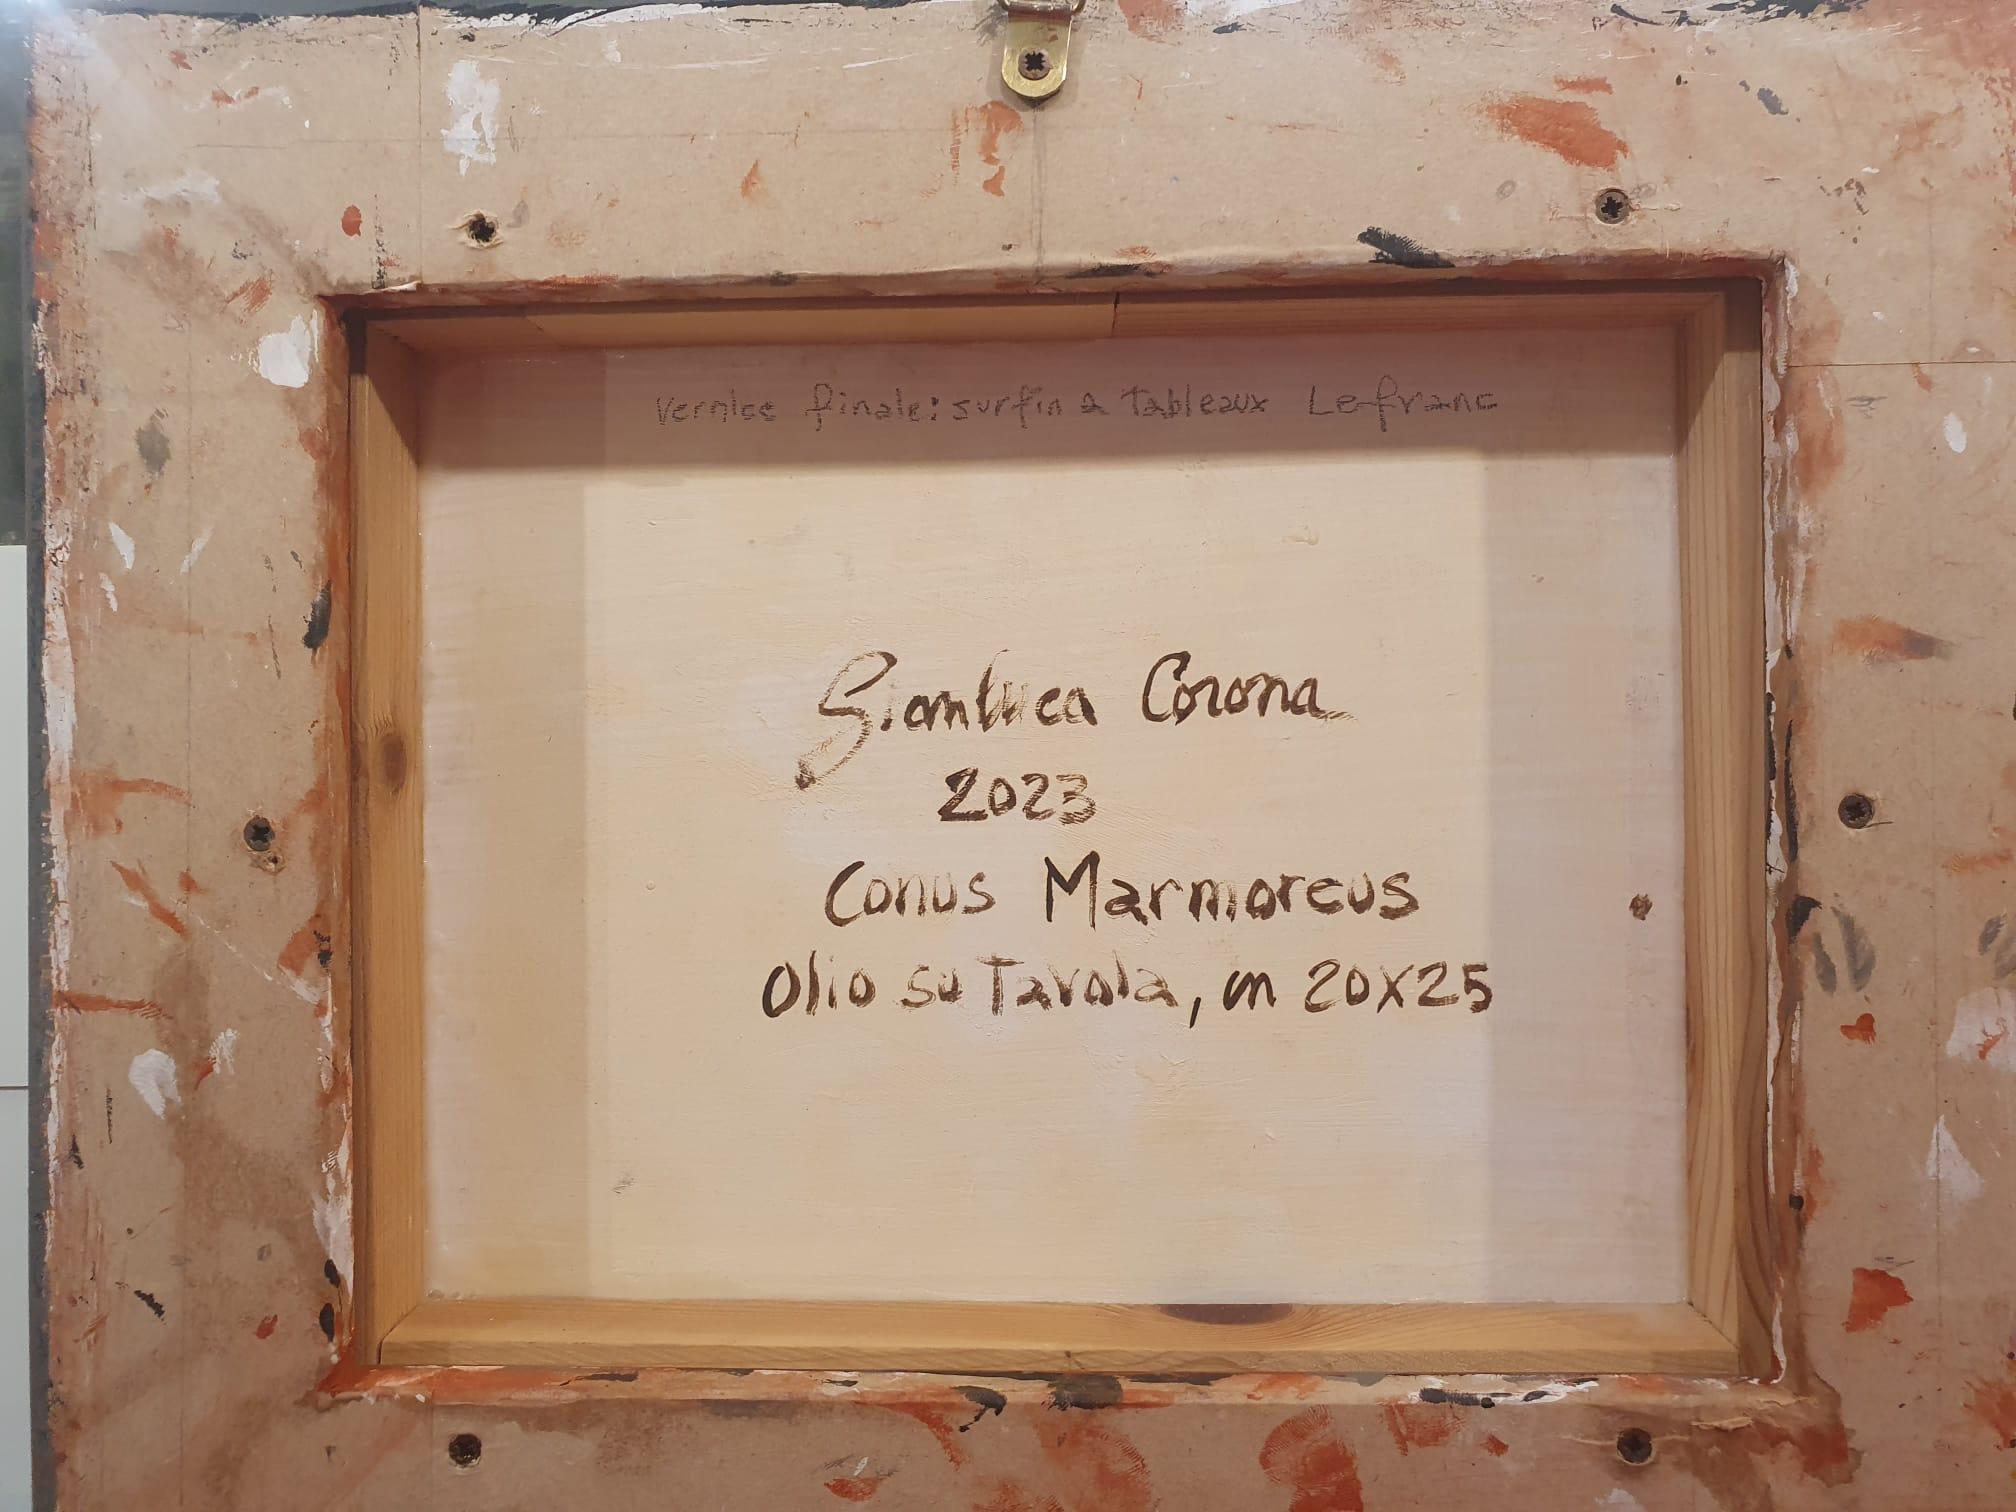 Vernice finale: surfin a tableaux Lefranc
Gianluca Corona
2023
Conus Marmoreus
Olio su Tavola, cm 20x25